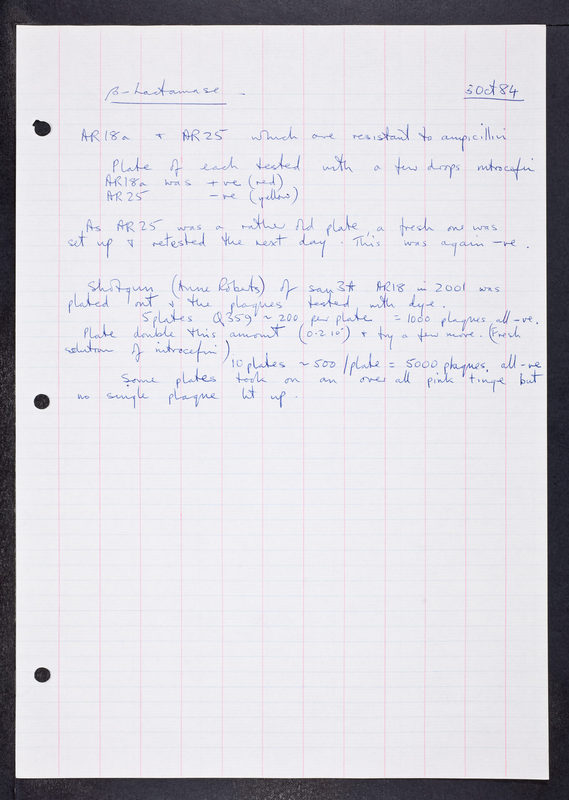 β-Lactamase - 3 Oct 84
AR18a + AR25 which are resistant to ampicillin
Plate of each tested with a few drops nitrocefin
AR18a was +ve (red)
AR25 -ve (yellow)
As AR25 was a rather old plate, a fresh one was
set up & retested the next day. This was again -ve.
Shotgun (Anne Roberts) of sau3A AR18 in 2001 was
plated out & the plaques tested with dye.
5 plates Q359 ~ 200 per plate = 1000 plaques all -ve.
Plate double this amount (0.2 10) & try a few more. (Fresh
solution of nitrocefin)
10 plates ~ 500/plate = 5000 plaques, all -ve
Some plates took on an over all pink tinge but
no single plaque lit up.